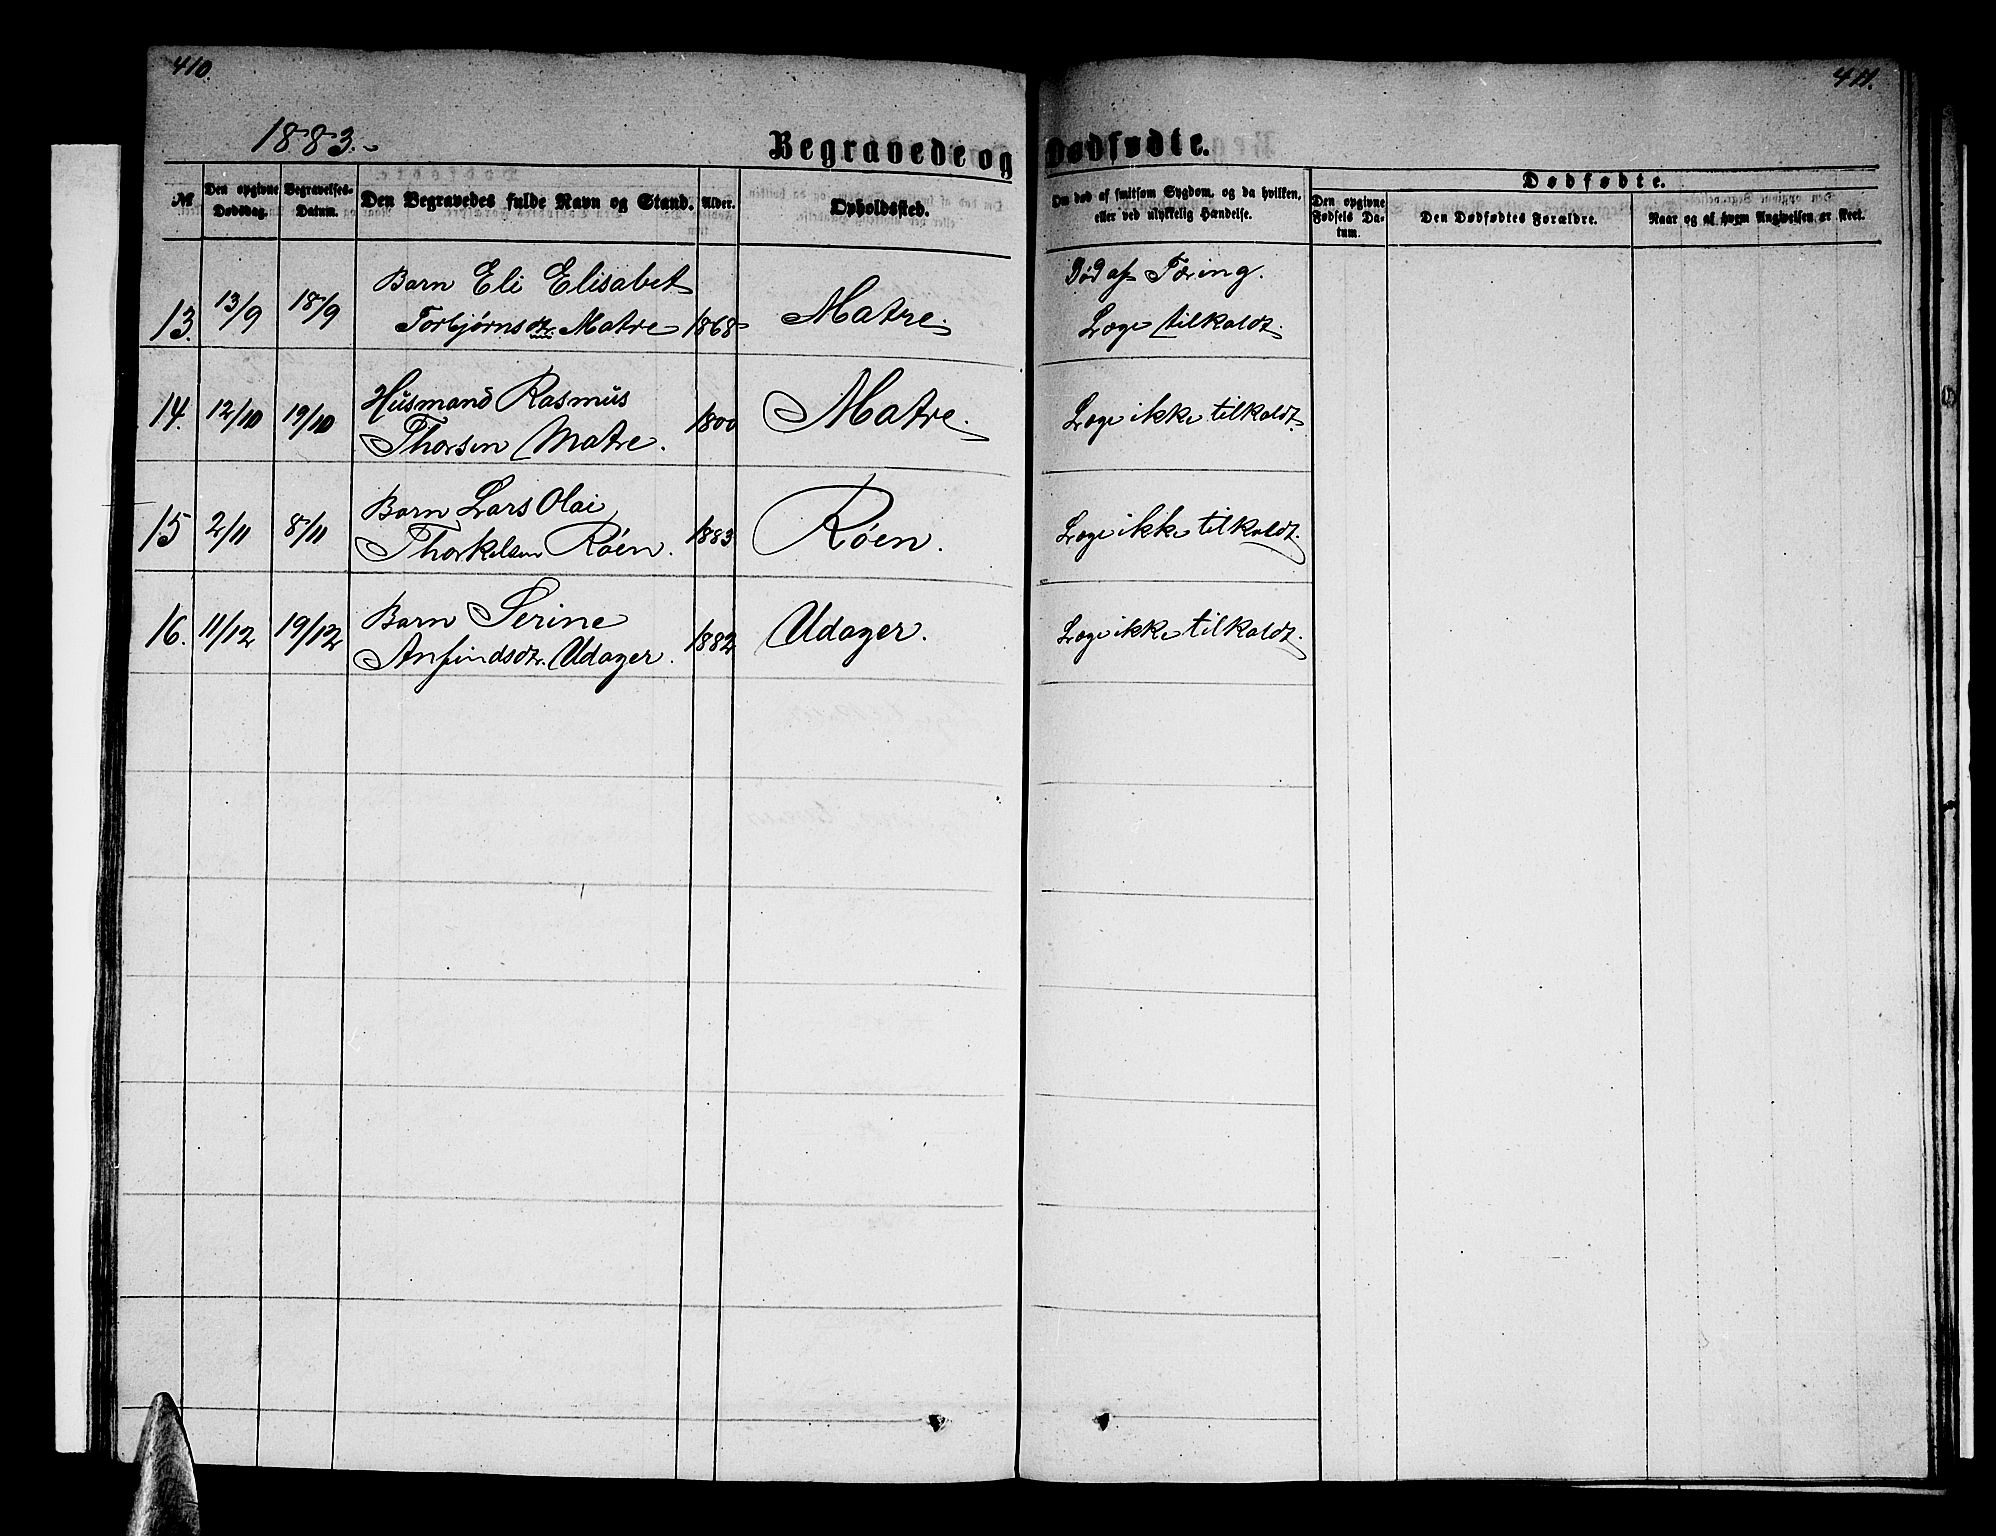 410.
411.
1883.
Begravede og Dødfødte.
№
Den opgivne Dødsdag.
Begravelses-Datum.
Den Begravedes fulde Navn og Stand.
Alder.
Opholdssted.
Om død af smitsom Sygdom, og da hvilken,
eller ved ulykkelig Hændelse.
Dødfødte.
Den opgivne Fødsels Datum.
Den Dødfødtes Forældre.
Naar og af hvem Angivelsen er skeet.
13. 13/9 18/9 Barn Eli Elisabet
Torbjørnsdtr. Matre 1868 Matre.
Død af Tæring.
Læge tilkaldt.
14. 12/10 19/10 Husmand Rasmus
Thorsen Matre. 1800 Matre.
Læge ikke tilkaldt.
15 2/11 8/11 Barn Lars Olai
Thorkelsen Røen. 1883 Røen.
Læge ikke tilkaldt.
16. 11/12 19/12 Barn Serine
Anfindsdtr. Udager. 1882 Udager.
Læge ikke tilkaldt.